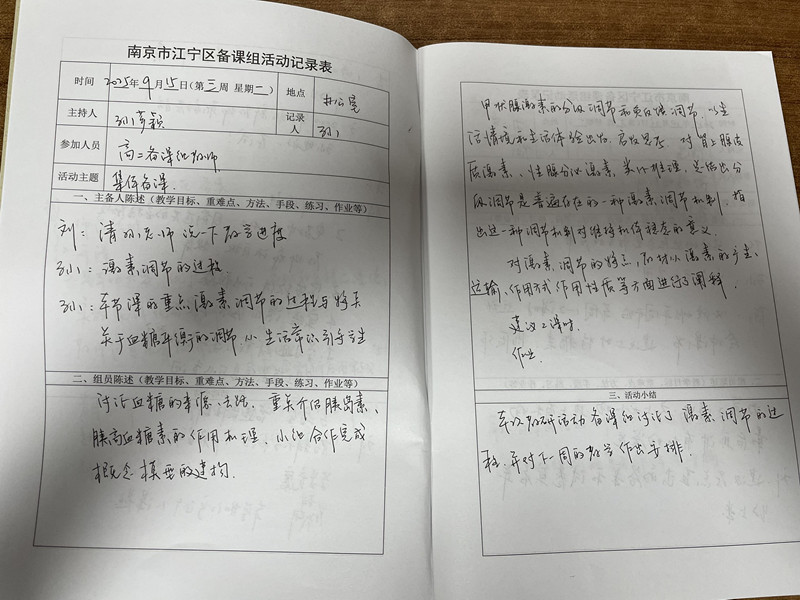 南京市江宁区备课组活动记录表
时间 2025年9月15日(第三周 星期一) 地点 办公室
主持人 孙梦颖 记录人 孙
参加人员 高二备课组教师
活动主题 集体备课.
一、主备人陈述(教学目标、重难点、方法、手段、练习、作业等)
刘: 请孙老师说一下教学进度
孙: 激素调节的过程
孙: 本节课的重点激素调节的过程与特点
关于血糖平衡的调节从生活常识引导学生
二、组员陈述(教学目标、重难点、方法、手段、练习、作业等)
讨论血糖的来源、去路. 重点介绍胰岛素、
胰高血糖素的作用机理. 小组合作完成
概念模型的建构.
甲状腺激素的分级调节和负反馈调节, 以生
活情境和生活体验出发. 启发思考. 对肾上腺皮
质激素、性腺分泌激素, 类比推理, 总结出分
级调节是普遍存在的一种激素调节机制. 指
出这一种调节机制对维持机体稳态的意义.
对激素调节的特点, 即对从激素的产生、
运输、作用方式作用性质等方面进行了阐释.
建议2课时.
作业.
三、活动小结
本次教研活动备课组讨论了激素调节的过
程. 并对下一周的教学作出安排.